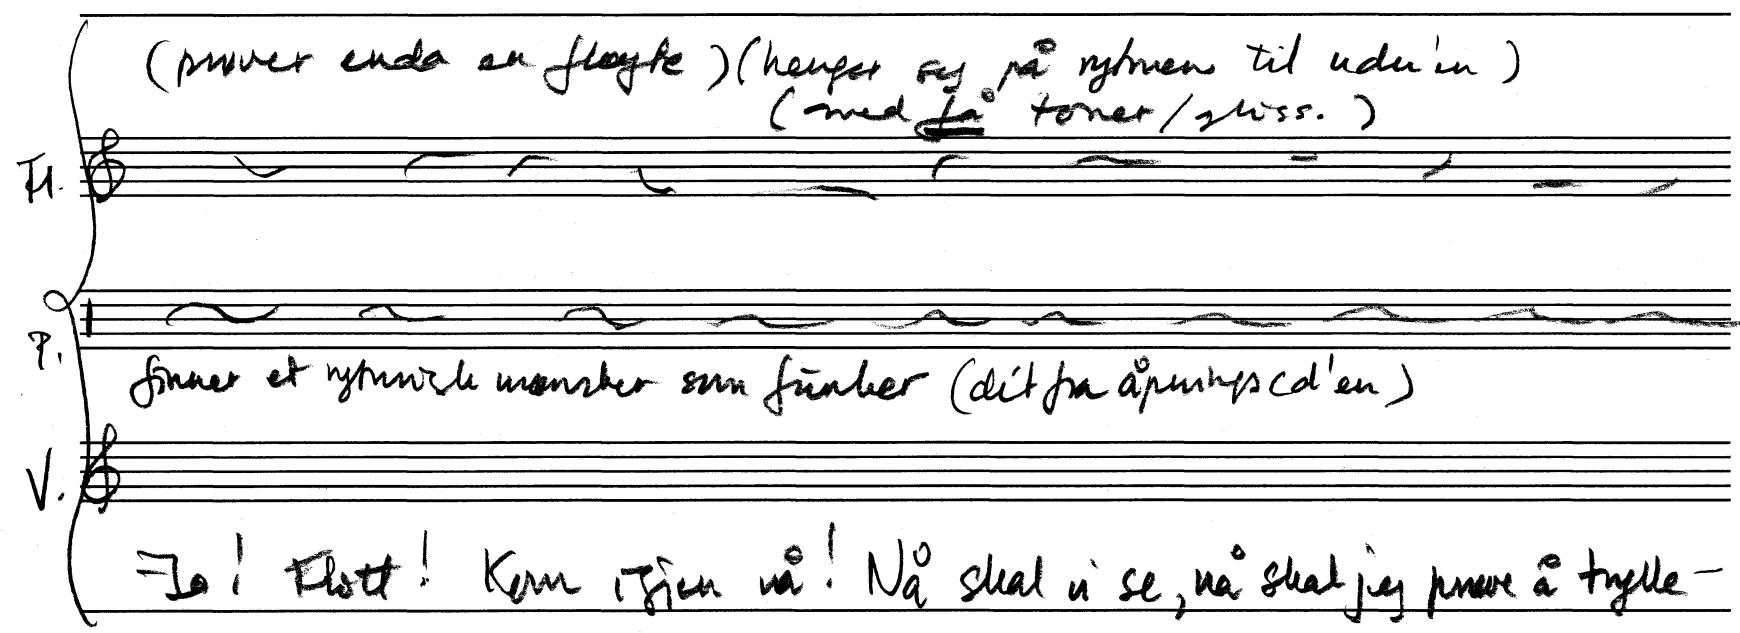 (prøver enda en fløyte) (henger seg på rytmen til udu'en)
(med få toner/gliss.)
Fl.
P.
finner et rytmisk mønster som funker (ditfra åpningscd'en)
V.
Ja! Flott! Kom igjen nå! Nå skal vi se, nå skal jeg prøve å trylle–